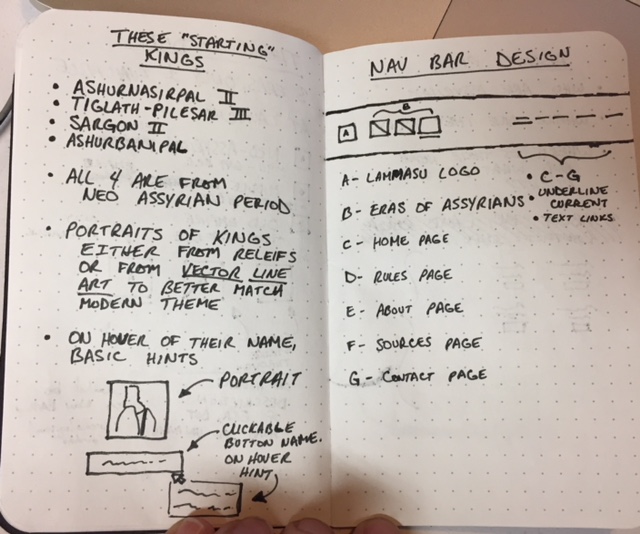 THESE "STARTING"
KINGS
• ASHURNASIRPAL II
• TIGLATH-PILESAR III
• SARGON II
• ASHURBANIPAL
• ALL 4 ARE FROM
NEO ASSYRIAN PERIOD
• PORTRAITS OF KINGS
EITHER FROM RELEIFS
OR FROM VECTOR LINE
ART TO BETTER MATCH
MODERN THEME
• ON HOVER OF THEIR NAME,
BASIC HINTS
PORTRAIT
CLICKABLE
BUTTON NAME.
ON HOVER
HINT
NAV BAR DESIGN
B
A
A- LAMMASU LOGO
B- ERAS OF ASSYRIANS
C- HOME PAGE
D- RULES PAGE
E- ABOUT PAGE
F- SOURCES PAGE
G- CONTACT PAGE
• C-G
• UNDERLINE
CURRENT
• TEXT LINKS